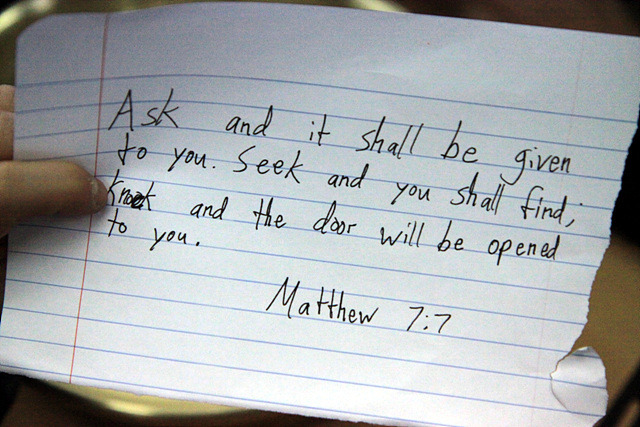 Ask and it shall be given
to you. Seek and you shall find;
knock and the door will be opened
to you.
Matthew 7:7